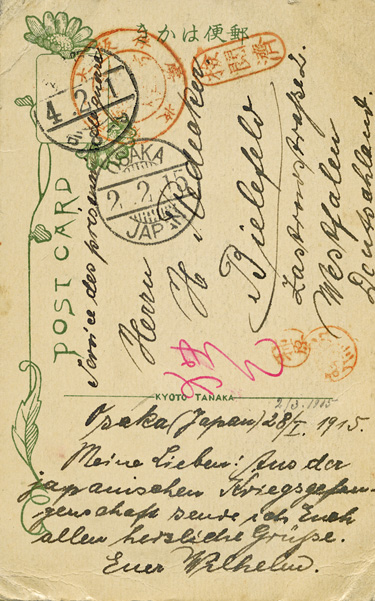 きかは便郵
POST CARD
Service des prisonniers de guerre
4.2.1
OSAKA
2.2.15
JAPAN
検閲済
Herrn
H.
Bielefeld
Zastrowstraße 2.
Westfalen
Deutschland.
KYOTO TANAKA
2/3.1915
Osaka (Japan) 28/I. 1915.
Meine Lieben! Aus der
japanischen Kriegsgefan-
genschaft sende ich Euch
allen herzliche Grüße.
Euer Wilhelm.